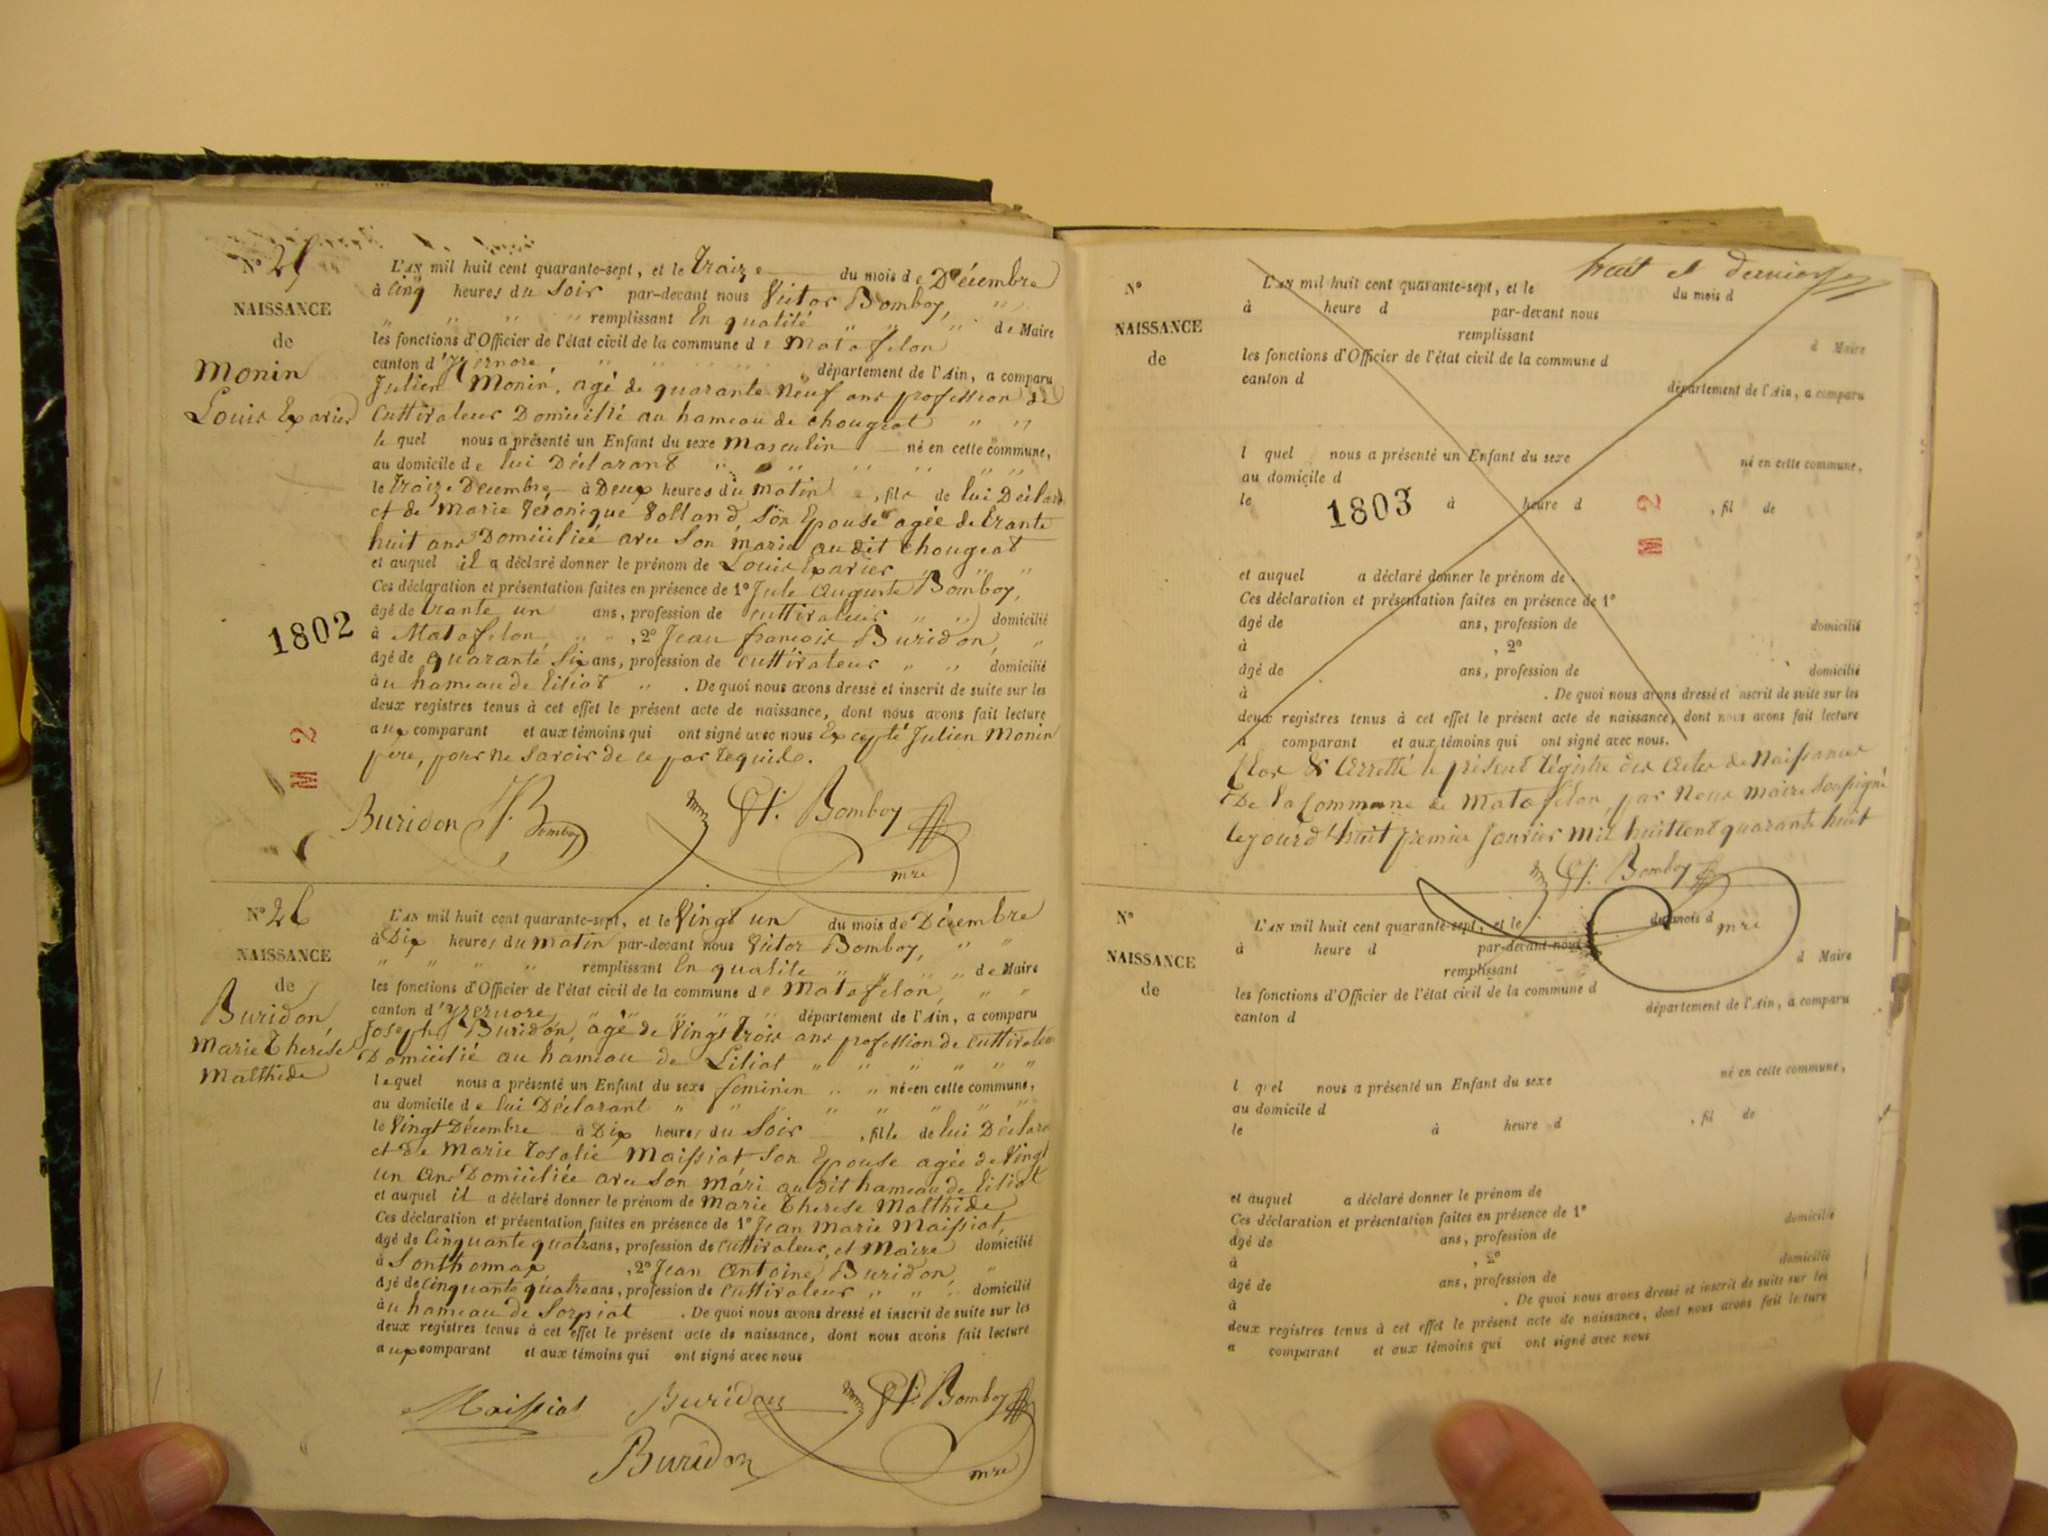 N° 25
NAISSANCE
de
Monin
Louis Exavier
L'AN mil huit cent quarante-sept, et le Traize du mois de Décembre
à Cinq heures du Soir par-devant nous Victor Bomboy,
remplissant En qualité de Maire
les fonctions d'Officier de l'état civil de la commune de Matafelon
canton d'Yzernore, département de l'Ain, a comparu
Julien Monin, agé de quarante Neuf ans profession de
Cuttivateur Domicilié au hameau de chougeat
lequel nous a présenté un Enfant du sexe Masculin né en cette commune,
au domicile de lui Déclarant
le Traize Décembre à Deux heures du Matin, fils de lui Déclarant
et de Marie Véronique Volland, Son Epouse agée de trante
huit ans Domiciliée avec Son marie au dit Chougeat
et auquel il a déclaré donner le prénom de Louis Exavier
Ces déclaration et présentation faites en présence de 1° Jule Auguste Bomboy,
âgé de trante un ans, profession de cuttivateur domicilié
à Matafelon, 2° Jean françois Buridon,
âgé de quarante Six ans, profession de cuttivateur domicilié
au hameau de Liliat. De quoi nous avons dressé et inscrit de suite sur les
deux registres tenus à cet effet le présent acte de naissance, dont nous avons fait lecture
aux comparant et aux témoins qui ont signé avec nous Excepté Julien Monin
père, pour ne Savoir de ce par Requido.
1802
M 2
Buridon Bomboy Bomboy
mre
N° 26
NAISSANCE
de
Buridon,
Marie Therese
Malthide
L'AN mil huit cent quarante-sept, et le Vingt un du mois de Décembre
à Dix heures du matin par-devant nous Victor Bomboy,
remplissant En qualité de Maire
les fonctions d'Officier de l'état civil de la commune de Matafelon,
canton d'Yzernore, département de l'Ain, a comparu
Joseph Buridon, agé de Vingt Trois ans profession de Cuttivateur
Domicilié au hameau de Liliat
lequel nous a présenté un Enfant du sexe féminin né en cette commune,
au domicile de lui Déclarant
le Vingt Décembre à Dix heures du Soir, fille de lui Déclarant
et de Marie Rosalie Maissiat Son Epouse agée de Vingt
un ans Domiciliée avec Son mari au dit hameau de Liliat
et auquel il a déclaré donner le prénom de Marie Therese Malthide
Ces déclaration et présentation faites en présence de 1° Jean Marie Maissiat,
âgé de Cinquante quatre ans, profession de Cuttivateur, et Maire domicilié
à Sonthonnax, 2° Jean Antoine Buridon,
âgé de Cinquante quatre ans, profession de Cuttivateur domicilié
au hameau de Sorpiat. De quoi nous avons dressé et inscrit de suite sur les
deux registres tenus à cet effet le présent acte de naissance, dont nous avons fait lecture
aux comparant et aux témoins qui ont signé avec nous
Maissiat Buridon Bomboy
Buridon mre
huit et dernier
N°
NAISSANCE
de
L'AN mil huit cent quarante-sept, et le du mois d
à heure d par-devant nous
remplissant d Maire
les fonctions d'Officier de l'état civil de la commune d
canton d département de l'Ain, a comparu
l quel nous a présenté un Enfant du sexe né en cette commune,
au domicile d
le à heure d , fil de
1803
M 2
et auquel a déclaré donner le prénom de
Ces déclaration et présentation faites en présence de 1°
âgé de ans, profession de domicilié
à , 2°
âgé de ans, profession de domicilié
à . De quoi nous avons dressé et inscrit de suite sur les
deux registres tenus à cet effet le présent acte de naissance, dont nous avons fait lecture
a comparant et aux témoins qui ont signé avec nous.
Clos & Arretté le présent Régistre des Actes de Naissances
De la Commune de Matafelon, par Nous Maire Soussigné
lejourd'huit premier Janvier mil huit cent quarante huit
Bomboy
mre
N°
NAISSANCE
de
L'AN mil huit cent quarante-sept, et le du mois d
à heure d par-devant nous
remplissant d Maire
les fonctions d'Officier de l'état civil de la commune d
canton d département de l'Ain, a comparu
l quel nous a présenté un Enfant du sexe né en cette commune,
au domicile d
le à heure d , fil de
et auquel a déclaré donner le prénom de
Ces déclaration et présentation faites en présence de 1°
âgé de ans, profession de domicilié
à , 2°
âgé de ans, profession de domicilié
à . De quoi nous avons dressé et inscrit de suite sur les
deux registres tenus à cet effet le présent acte de naissance, dont nous avons fait lecture
a comparant et aux témoins qui ont signé avec nous